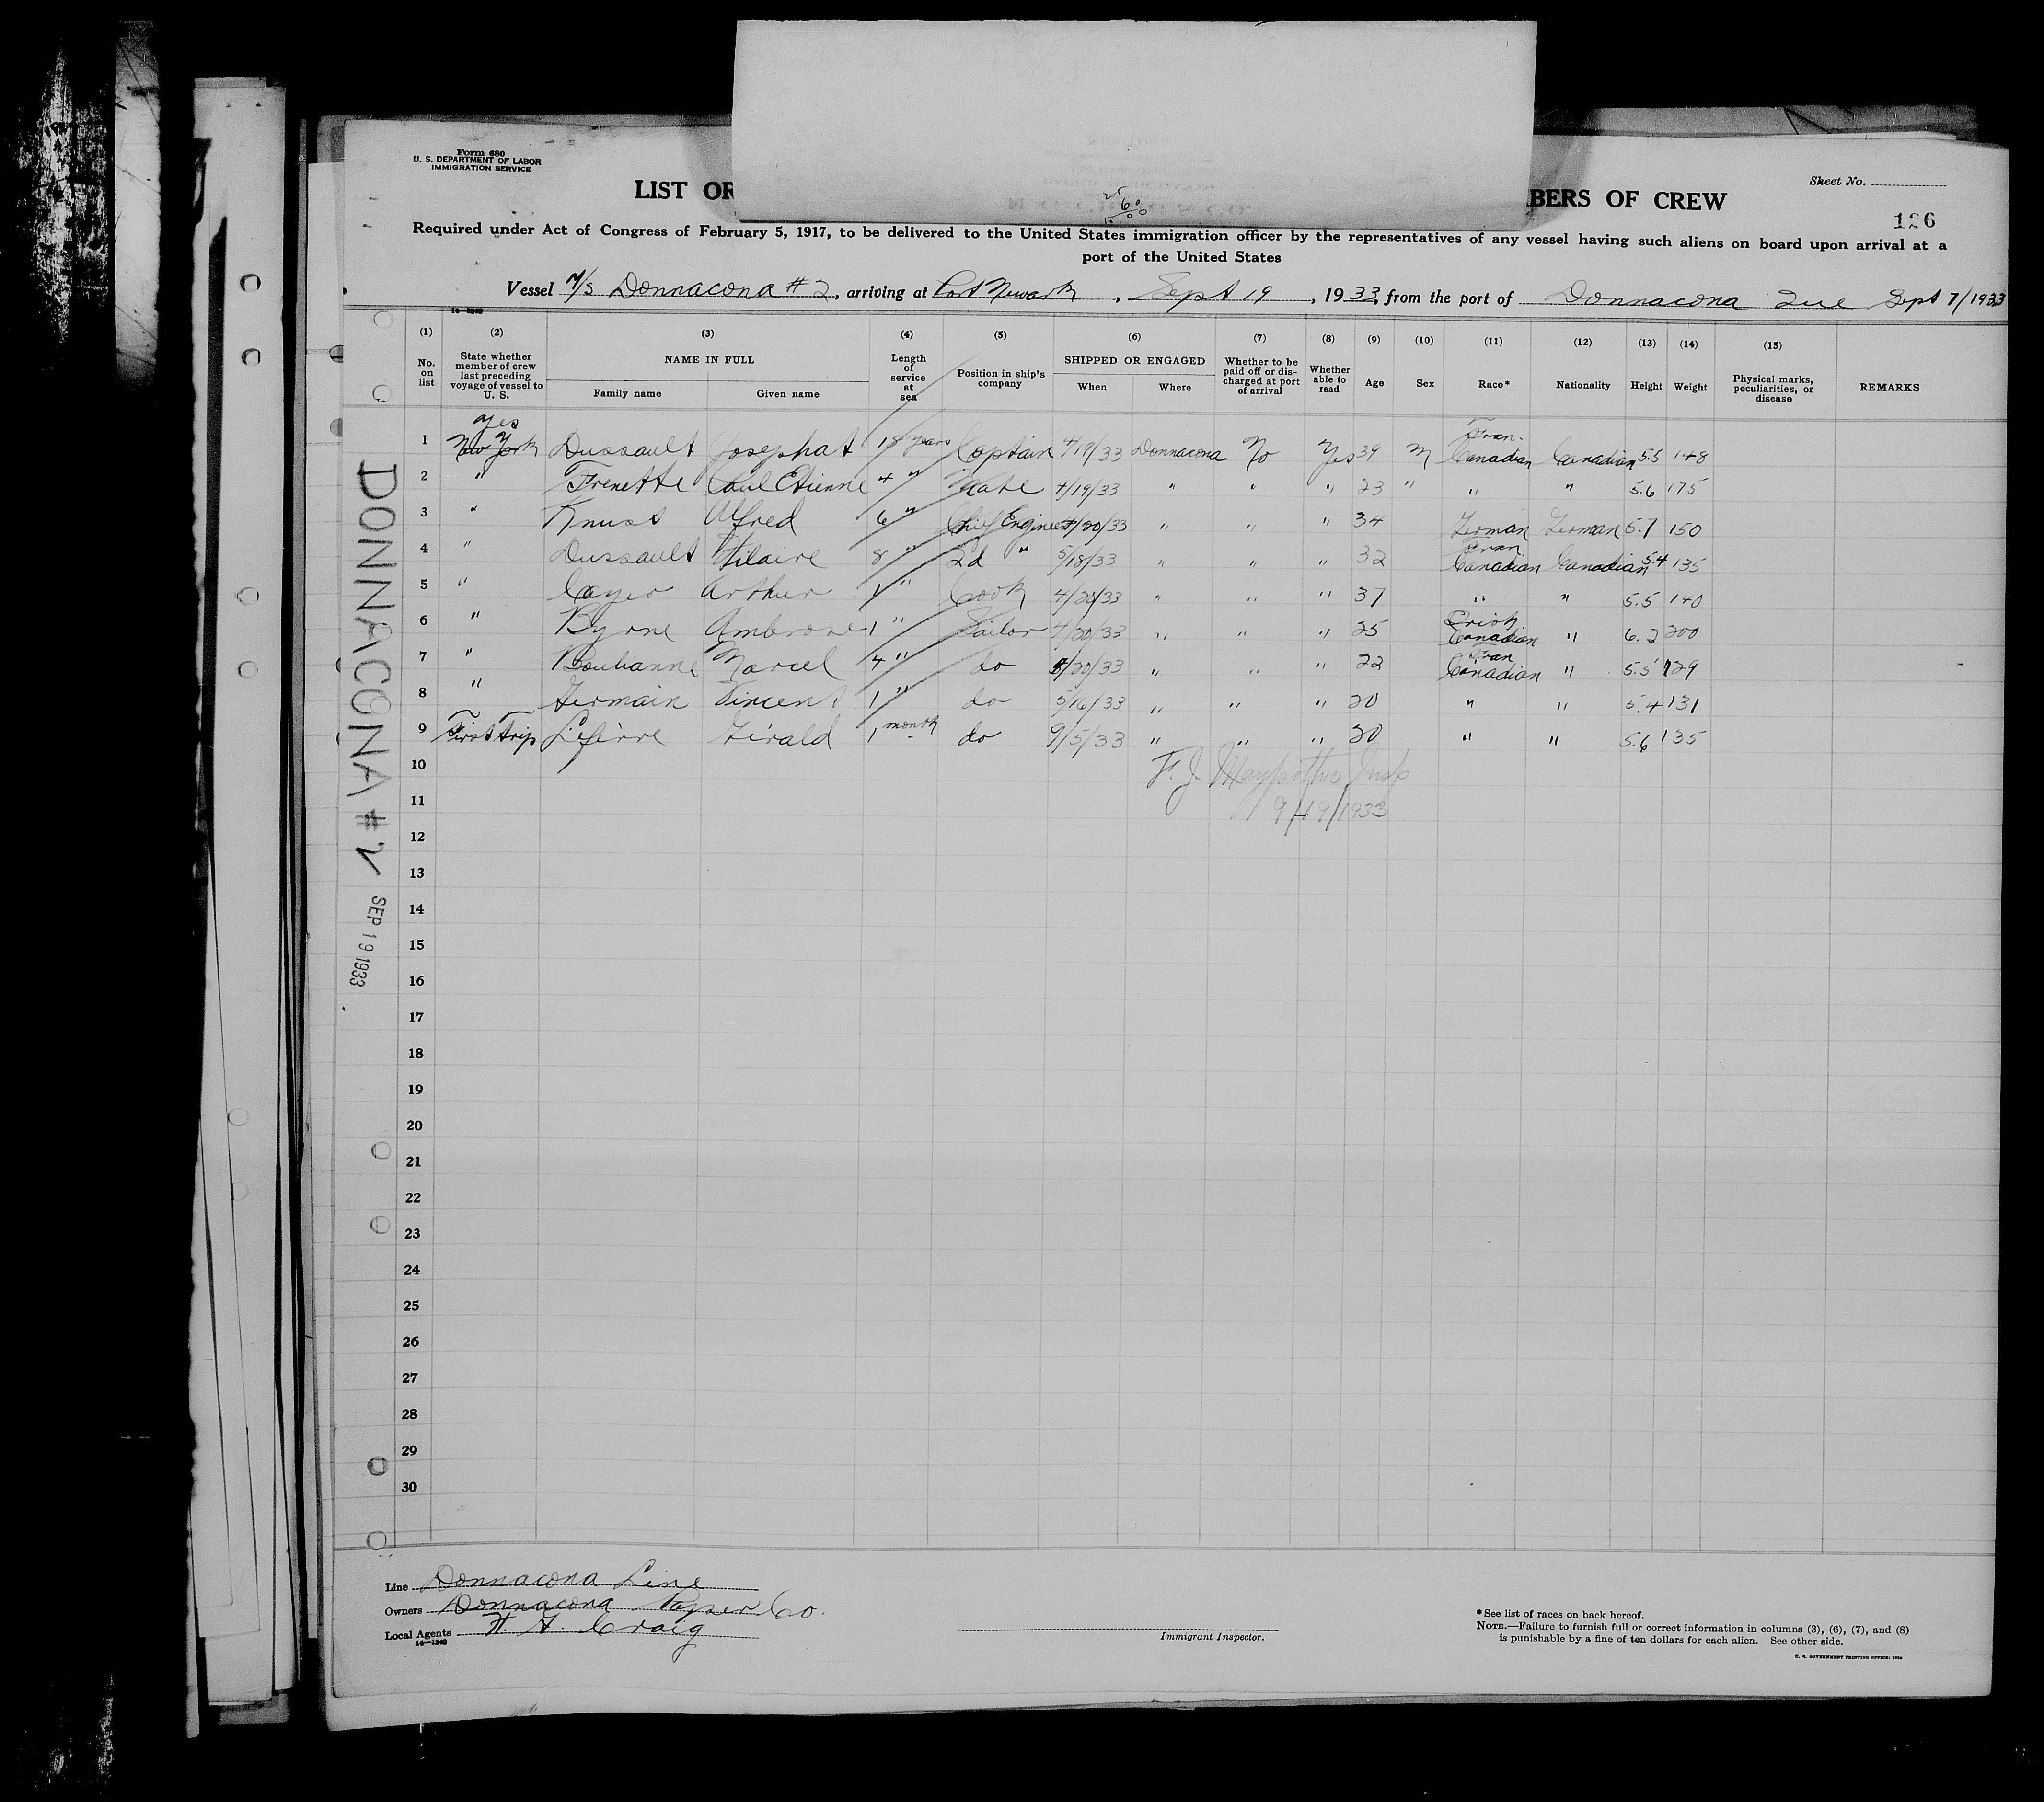 Form 680
U. S. DEPARTMENT OF LABOR
IMMIGRATION SERVICE
Sheet No.
LIST OR
BERS OF CREW
126
Required under Act of Congress of February 5, 1917, to be delivered to the United States immigration officer by the representatives of any vessel having such aliens on board upon arrival at a
port of the United States
Vessel M/S Donnacona # 2, arriving at Port Newark, Sept 19, 1933, from the port of Donnacona Que Sept 7/1933
14—1240
(1) (2) (3) (4) (5) (6) (7) (8) (9) (10) (11) (12) (13) (14) (15)
No. on list State whether member of crew last preceding voyage of vessel to U. S. NAME IN FULL Family name Given name Length of service at sea Position in ship's company SHIPPED OR ENGAGED When Where Whether to be paid off or discharged at port of arrival Whether able to read Age Sex Race* Nationality Height Weight Physical marks, peculiarities, or disease REMARKS
1 yes New York Dussault Josephat 18 years Captain 4/19/33 Donnacona No Yes 39 M Fran. Canadian Canadian 5.5 148
2 " Frenette Paul Etienne 4 " Mate 4/19/33 " " " 23 " " " 5.6 175
3 " Knust Alfred 6 " Chief Engineer 4/20/33 " " " 34 German German 5.7 150
4 " Dussault Hilaire 8 " 2d " 5/18/33 " " " 32 Fran Canadian Canadian 5.4 135
5 " Cayer Arthur 1 " Cook 4/20/33 " " " 37 " " 5.5 140
6 " Byrne Ambrose 1 " Sailor 4/20/33 " " " 25 Irish Canadian " 6.2 200
7 " Boulianne Marcel 4 " do 4/20/33 " " " 22 Fran Canadian " 5.5 129
8 " Germain Vincent 1 " do 5/16/33 " " " 20 " " 5.4 131
9 First trip Lefevre Girald 1 month do 9/5/33 " " " 20 " " 5.6 135
10 F. J. Insp
11 9/19/1933
12
13
14
15
16
17
18
19
20
21
22
23
24
25
26
27
28
29
30
DONNACONA # 2
SEP 19 1933
Line Donnacona Line
Owners Donnacona Paper Co.
Local Agents H. G. Craig
14—1240
Immigrant Inspector.
* See list of races on back hereof.
NOTE.—Failure to furnish full or correct information in columns (3), (6), (7), and (8)
is punishable by a fine of ten dollars for each alien. See other side.
U. S. GOVERNMENT PRINTING OFFICE: 1930